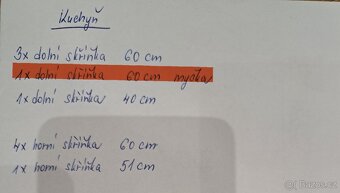 Kuchyň
3x dolní skříňka 60 cm
1x dolní skříňka 60 cm myčka
1x dolní skříňka 40 cm
4x horní skříňka 60 cm
1x horní skříňka 51 cm
Bazos.cz